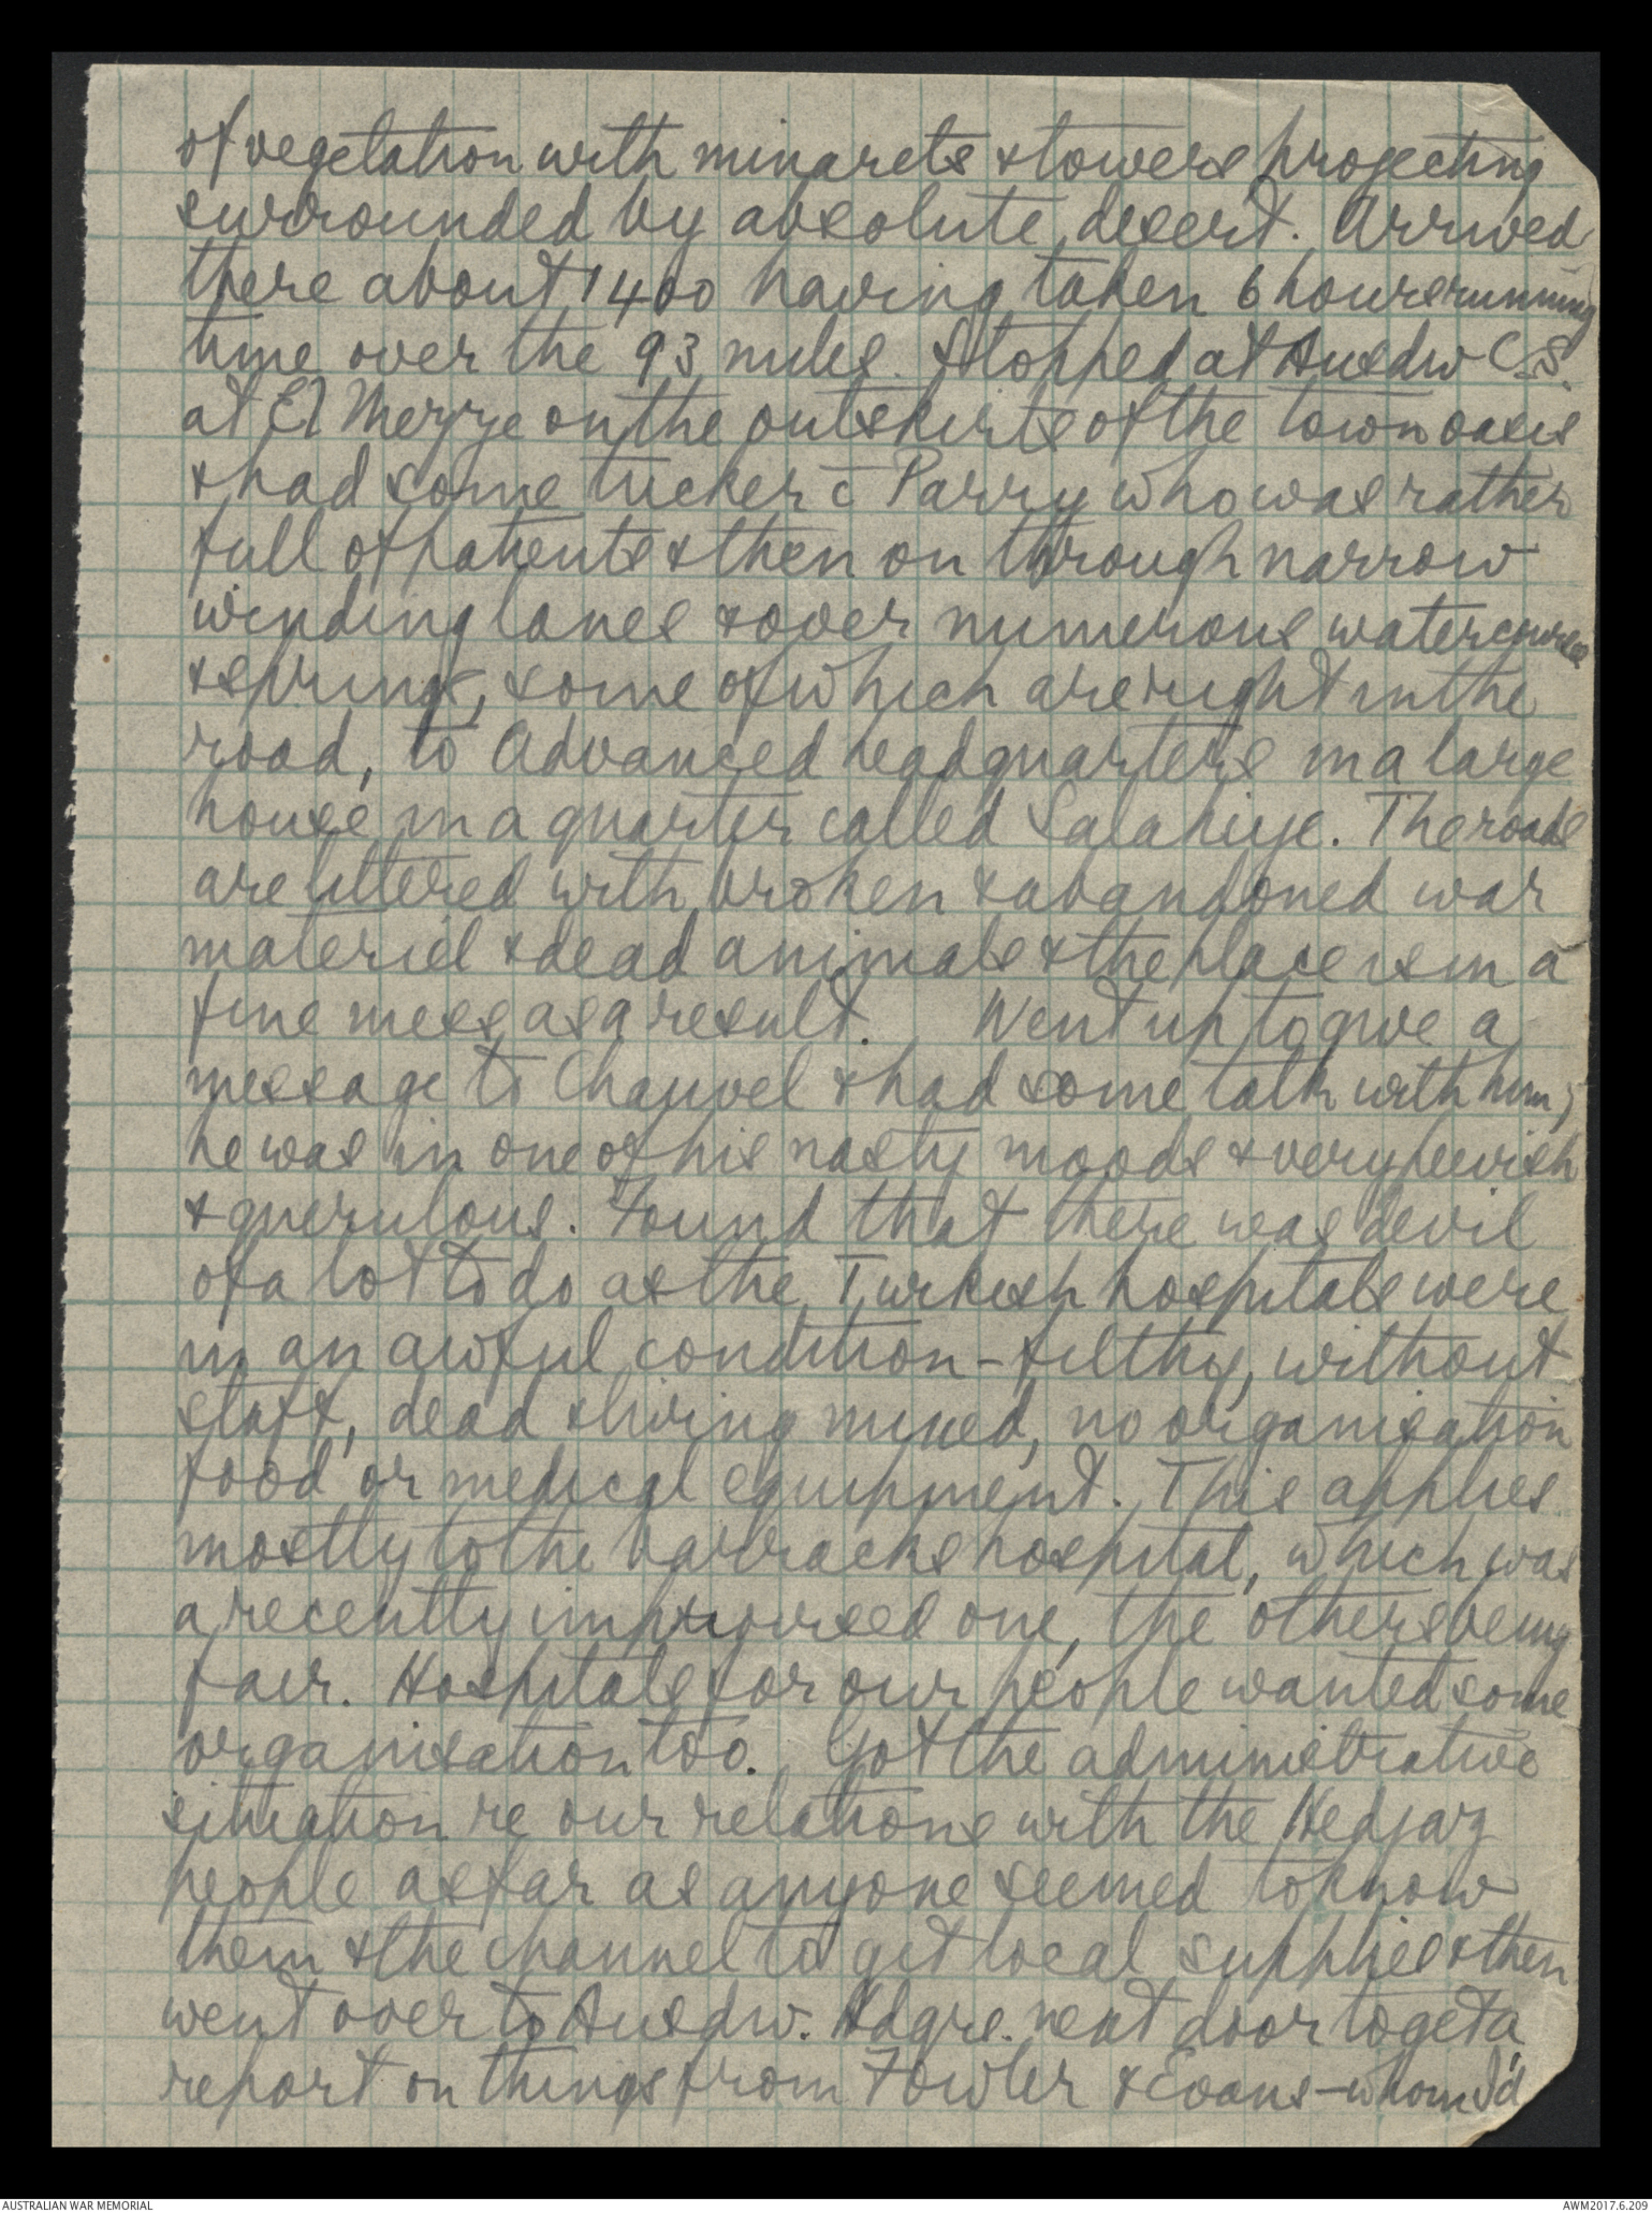 of vegetation with minarets & towers projecting
surrounded by absolute desert. Arrived
there about 1400 having taken 6 hours running
time over the 93 miles. Stopped at Ausdiv C.S.
at El Mezze on the outskirts of the town oasis
& had some tucker c̄ Parry who was rather
full of patients & then on through narrow
winding lanes & over numerous watercourses
& springs, some of which are right in the
road, to Advanced headquarters in a large
house in a quarter called Salahiye. The roads
are littered with broken & abandoned war
materiel & dead animals & the place is in a
fine mess as a result. Went up to give a
message to Chauvel & had some talk with him;
he was in one of his nasty moods & very peevish
& querulous. Found that there was devil
of a lot to do as the Turkish hospitals were
in an awful condition - filthy, without
staff, dead & living mixed, no organisation
food or medical equipment. This applies
mostly to the barracks hospital, which was
a recently improvised one, the others being
fair. Hospitals for our people wanted some
organisation too. Got the administrative
situation re our relations with the Hedjaz
people as far as anyone seemed to know
them & the channel to get local supplies & then
went over to Ausdiv. Hdqrs. next door to get a
report on things from Fowler & Evans - whom I'd
AUSTRALIAN WAR MEMORIAL
AWM2017.6.209